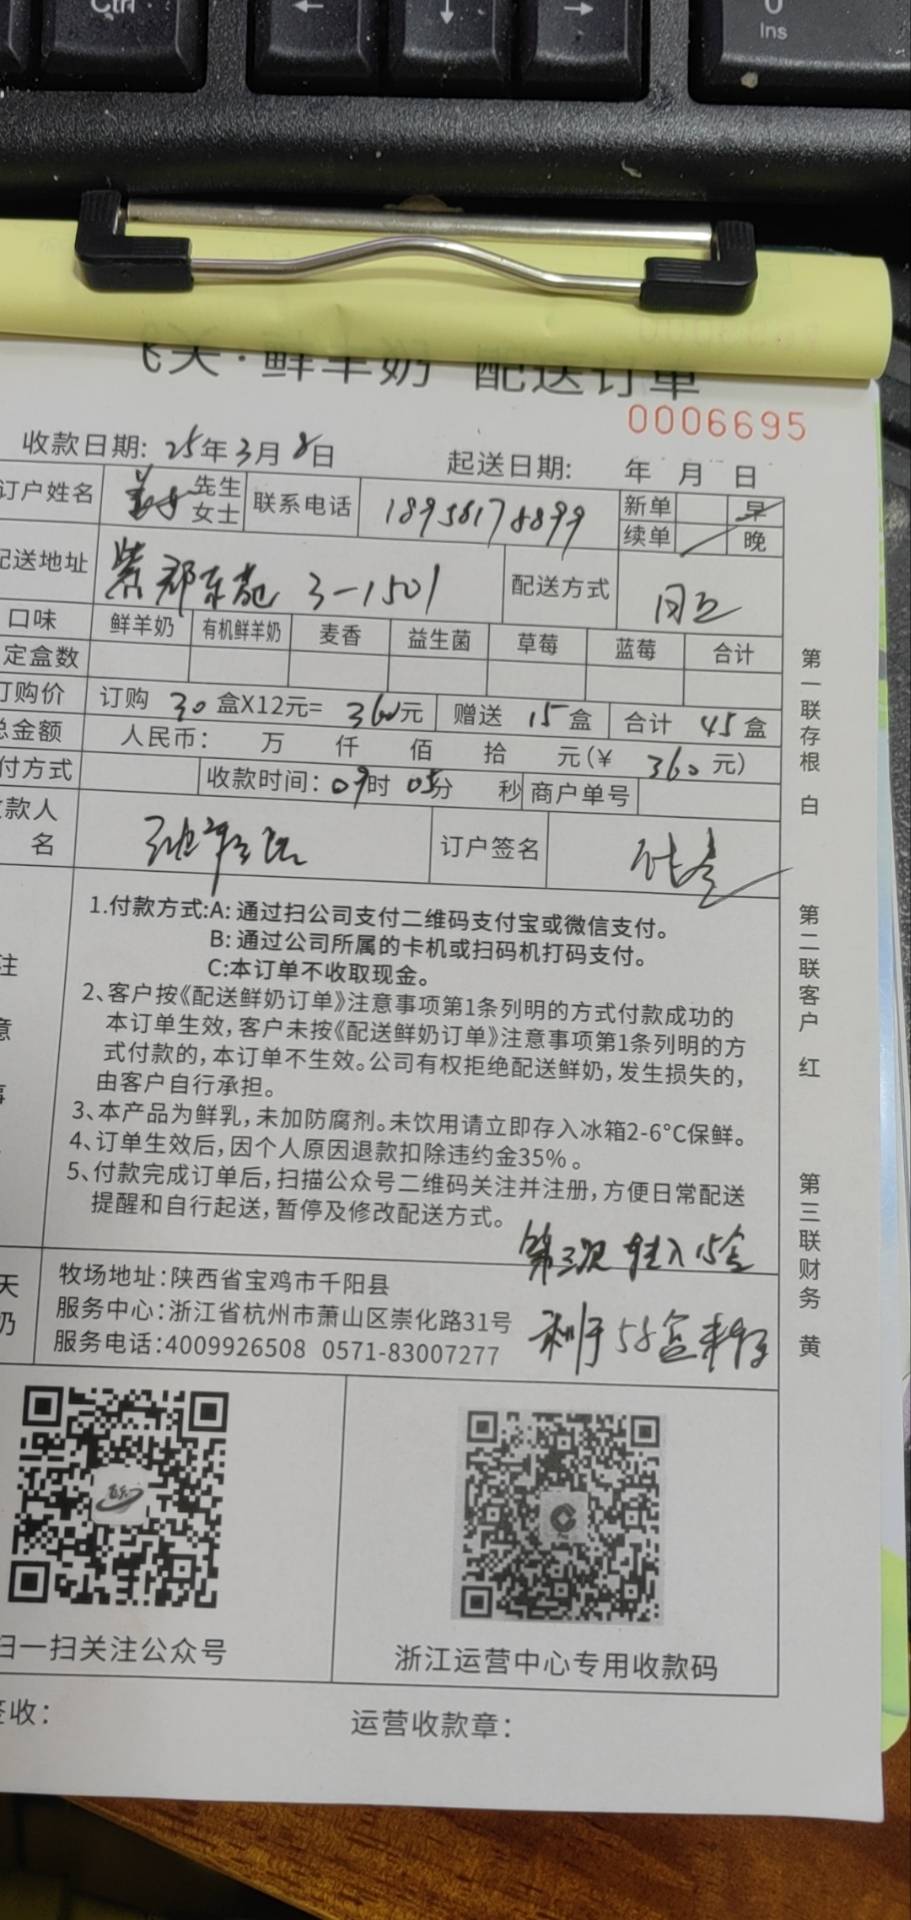 Ctrl
← ↓ →
0
Ins
飞天·鲜羊奶 配送订单
0006695
收款日期: 25年3月8日 起送日期: 年 月 日
订户姓名 先生 女士 联系电话 18958178899 新单 早
续单 晚
配送地址 紫郡东苑 3-1501 配送方式 周五
口味 鲜羊奶 有机鲜羊奶 麦香 益生菌 草莓 蓝莓 合计
定盒数
订购价 订购 30 盒X12元= 360元 赠送 15盒 合计 45盒
总金额 人民币: 万 仟 佰 拾 元(¥ 360元)
付方式 收款时间: 09时 05分 秒 商户单号
款人
名 订户签名
1.付款方式:A: 通过扫公司支付二维码支付宝或微信支付。
B: 通过公司所属的卡机或扫码机打码支付。
C:本订单不收取现金。
2、客户按《配送鲜奶订单》注意事项第1条列明的方式付款成功的
本订单生效,客户未按《配送鲜奶订单》注意事项第1条列明的方
式付款的,本订单不生效。公司有权拒绝配送鲜奶,发生损失的,
由客户自行承担。
3、本产品为鲜乳,未加防腐剂。未饮用请立即存入冰箱2-6°C保鲜。
4、订单生效后,因个人原因退款扣除违约金35%。
5、付款完成订单后,扫描公众号二维码关注并注册,方便日常配送
提醒和自行起送,暂停及修改配送方式。
注
意
事
第三次转入15盒
牧场地址:陕西省宝鸡市千阳县
服务中心:浙江省杭州市萧山区崇化路31号
服务电话:4009926508 0571-83007277
剩于58盒未
天
奶
扫一扫关注公众号
浙江运营中心专用收款码
签收:
运营收款章:
第一联存根 白
第二联客户 红
第三联财务 黄